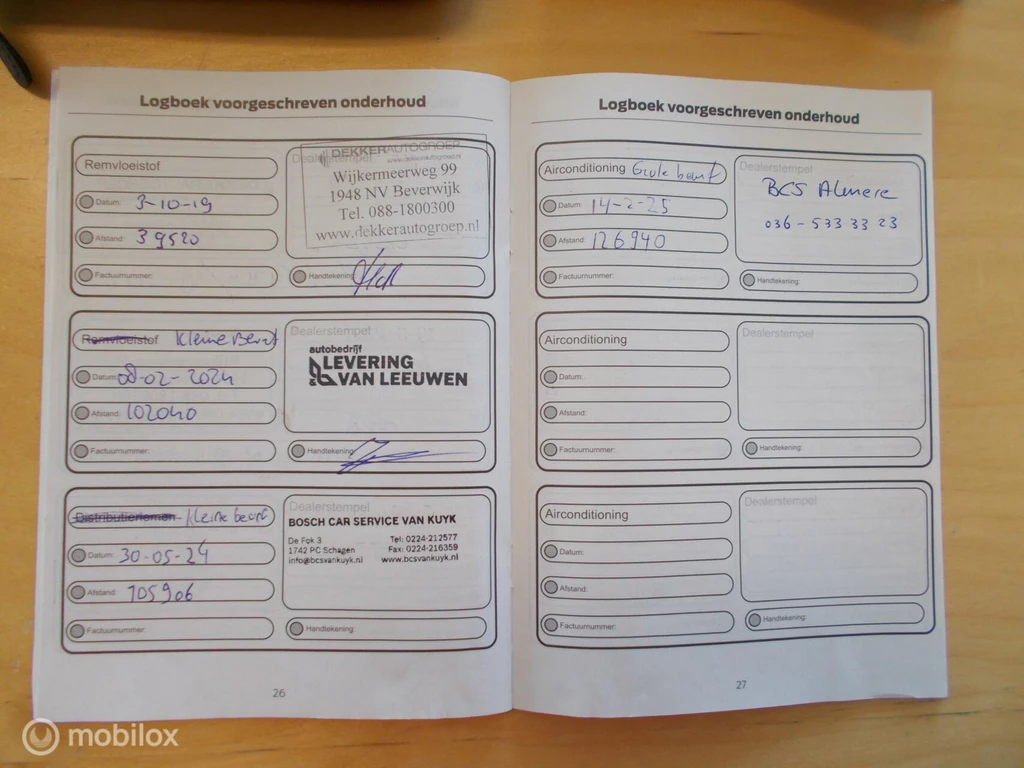 Logboek voorgeschreven onderhoud
Remvloeistof
Datum: 3-10-19
Afstand: 39520
Factuurnummer:
Dealerstempel
DEKKERAUTOGROEP
www.dekkerautogroep.nl
Wijkermeerweg 99
1948 NV Beverwijk
Tel. 088-1800300
www.dekkerautogroep.nl
Handtekening:
Remvloeistof Kleine Beurt
Datum: 08-02-2024
Afstand: 102040
Factuurnummer:
Dealerstempel
autobedrijf
LEVERING
VAN LEEUWEN
Handtekening:
Distributieriemen Kleine beurt
Datum: 30-05-24
Afstand: 105906
Factuurnummer:
Dealerstempel
BOSCH CAR SERVICE VAN KUYK
De Fok 3 Tel: 0224-212577
1742 PC Schagen Fax: 0224-216359
info@bcsvankuyk.nl www.bcsvankuyk.nl
Handtekening:
26
Logboek voorgeschreven onderhoud
Airconditioning Grote beurt
Datum: 14-2-25
Afstand: 126940
Factuurnummer:
Dealerstempel
BCS Almere
036-533 33 23
Handtekening:
Airconditioning
Datum:
Afstand:
Factuurnummer:
Dealerstempel
Handtekening:
Airconditioning
Datum:
Afstand:
Factuurnummer:
Dealerstempel
Handtekening:
27
mobilox